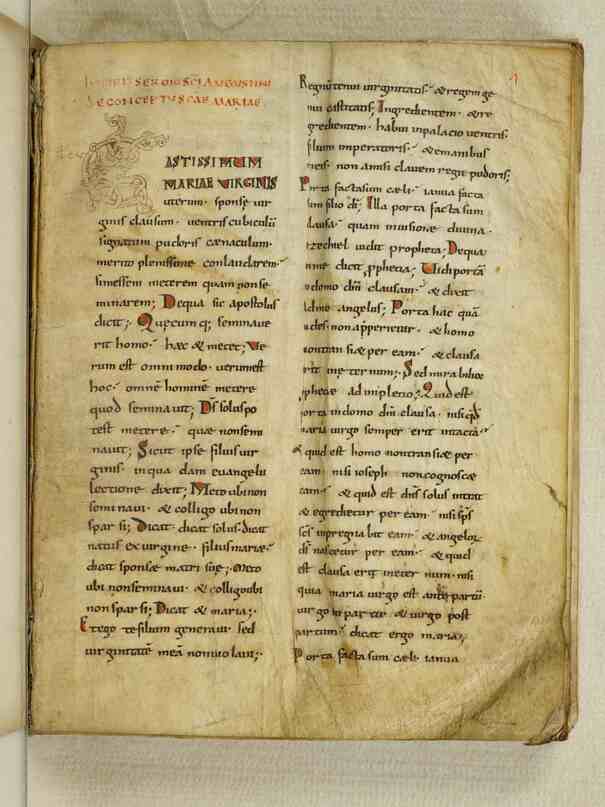 SERMO SCI AUGUSTINI
DE CONCEPTU SCAE MARIAE.
CASTISSIMUM
MARIAE VIRGINIS
uterum· sponse vir
ginis clausum· ventris cubiculū
signatum pudoris caenaculum·
merito plenissime conlaudarem·
si messem meterem quam non se
minarem; De qua sic apostolus
dicit; Quęcumq; seminaue
rit homo· haec & metet; Ve
rum est omnimodo· uerum est
hoc· omnē hominē metere
quod seminauit; Ds̄ solus po
test metere· quae non semi
nauit; Sicut ipse filius uir
ginis in quadam euangelii
lectione dixit; Meto ubi non
seminaui· & colligo ubi non
sparsi; Dicat· dicat solus· dicat
natus ex uirgine· filius mariae·
dicat sponse matri suę; Meto
ubi non seminaui· & colligo ubi
non sparsi; Dicat & maria;·
Et ego te filium generaui sed
uirginitatē meā non uiolaui;·
Regnū tenui uirginitatis· & regem ge
nui castitatis; Ingredientem· & re
gredientem· habui in palacio uentris
filium imperatoris· & e manibus
meis· non amisi clauem regii pudoris;
Porta facta sum cęli· ianua facta
sum filio dī; Illa porta facta sum
clausa· quam in uisione diuina·
ezechiel uidit propheta; De qua
dicit ,pphetia; Uidi portā
in domo dnī clausam· & dixit
ad me angelus; Porta hęc quā
uides non apperietur· & homo
non transiet per eam· & clausa
erit in eternum; Sed mirabilior
,pphetiae adimpletio; Quid est
porta in domo dnī clausa· nisi qđ
maria uirgo semper erit intacta·
& quid est homo non transiet per
eam· nisi ioseph non cognoscet
eam· & quid est dn̄s solus intrat
& egredietur per eam· nisi sp̄s
sc̄s inpregnabit eam· & angelor̄
dn̄s nascetur per eam· & quid
est clausa erit in eternum· nisi
quia maria uirgo est ante partū·
uirgo in partu· & uirgo post
partum· dicat ergo maria;
Porta facta sum cęli· ianua